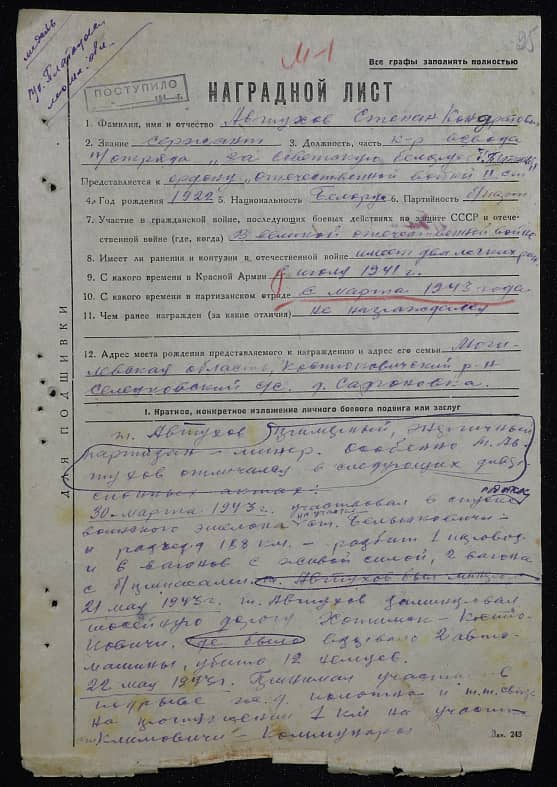 М-1
95
медаль
Все графы заполнять полностью
ПОСТУПИЛО
НАГРАДНОЙ ЛИСТ
1. Фамилия, имя и отчество Автухов Степан Кондратович
2. Звание сержант 3. Должность, часть к-р взвода
п/отряда „За Советскую Белорус.
Представляется к ордену „Отечественной войны II ст.
4. Год рождения 1922 5. Национальность Белорус 6. Партийность
7. Участие в гражданской войне, последующих боевых действиях по защите СССР и отече-
ственной войне (где, когда) В великой отечественной войне
8. Имеет ли ранения и контузии в отечественной войне имеет два легких ран.
9. С какого времени в Красной Армии с июля 1941 г.
10. С какого времени в партизанском отряде с марта 1943 года
11. Чем ранее награжден (за какие отличия) не награждался
12. Адрес места рождения представляемого к награждению и адрес его семьи Моги-
левская область, Костюковичский р-н
Селецковский с/с. д. Сафоновка.
ДЛЯ ПОДШИВКИ
I. Краткое, конкретное изложение личного боевого подвига или заслуг
т. Автухов
партизан - минер. Особенно т. Ав-
тухов отличался в следующих дивер-
сионных актах:
30 марта 1943 г. участвовал в спуске
воинского эшелона на участке ст. Белынковичи -
и разъезд 188 км. - разбит 1 паровоз
и 6 вагонов с живой силой, 2 вагона
с б/припасами. т. Автухов был
21 мая 1943 г. т. Автухов заминировал
шоссейную дорогу Хотимск - Костю-
ковичи. где было взорвано 2 авто-
машины, убито 12 немцев.
22 мая 1943 г. Принимал участие в
подрыве ж.д. полотна и
на протяжении 1 км на участке
ст. Климовичи - Коммунары
Зак. 243